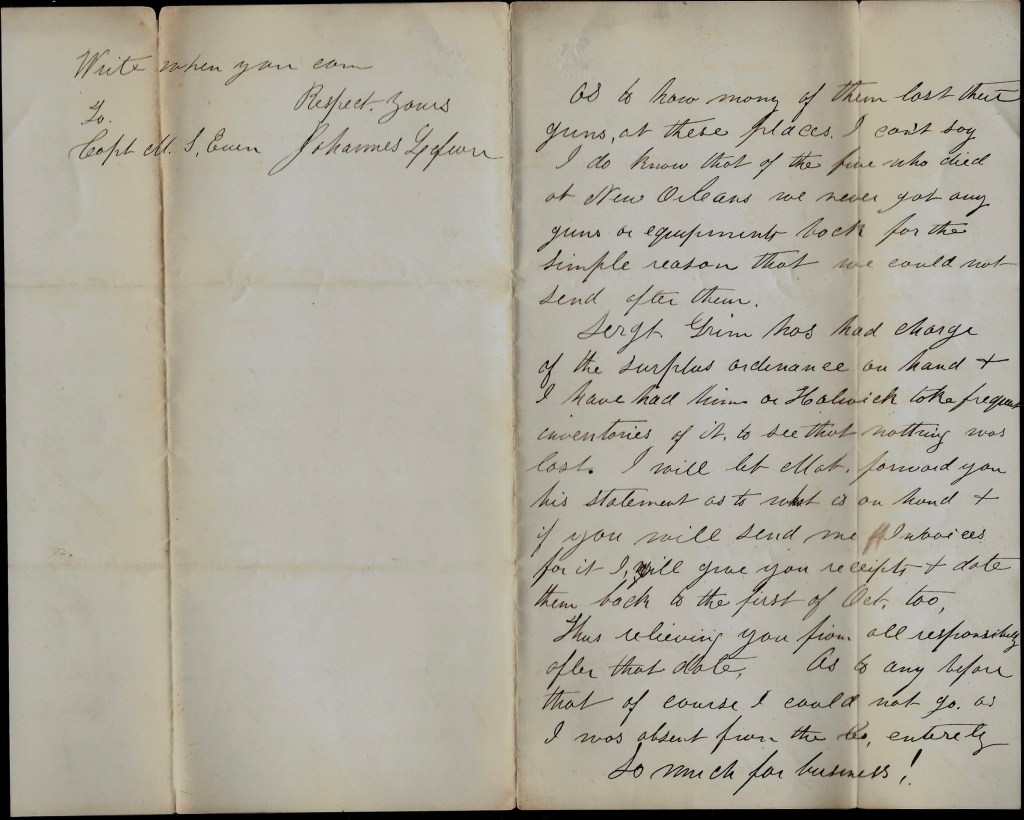 Write when you can
Respect. Yours
To.
Capt M. S. Ewen Johannes Lefevre
As to how many of them lost their
guns, at these places. I can't say
I do know that of the five who died
at New Orleans we never got any
guns or equipments back for the
simple reason that we could not
send after them.
Sergt. Grim has had charge
of the surplus ordinance on hand +
I have had him or Halwick take frequent
inventories of it. to see that nothing was
lost. I will let Mat. forward you
his statement as to what is on hand +
if you will send me Invoices
for it I, will give you receipts + date
them back to the first of Oct. too,
Thus relieving you from all responsibility
after that date, As to any before
that of course I could not go. as
I was absent from the Co, entirely
So much for business!